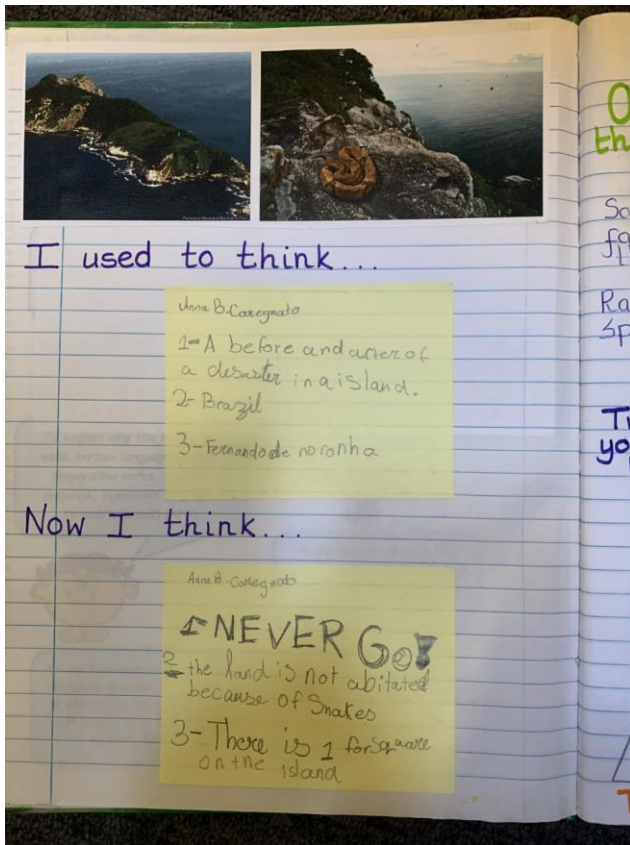 I used to think...
Anna B. Caregnato
1- A before and after of
a desaster in a island.
2- Brazil
3- Fernando de noronha
Now I think...
Anna B. Caregnato
1- NEVER GO!
2- the land is not abitated
because of Snakes
3- There is 1 for Square
on the island